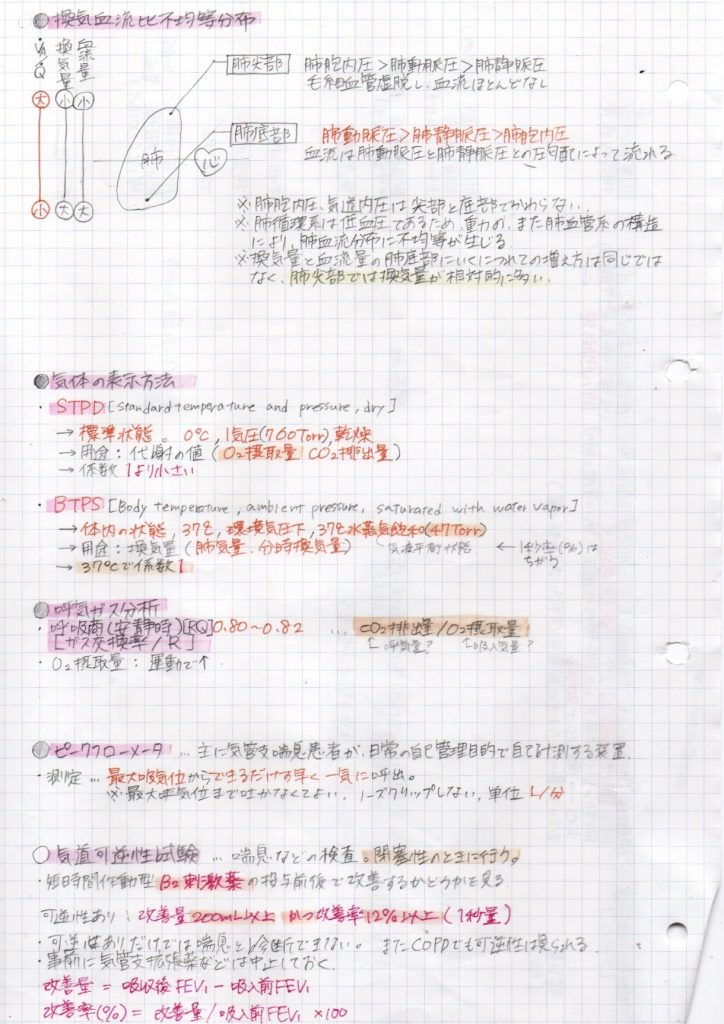 ●換気血流比不均等分布
V̇A/Q̇
換気量
血流量
大 小 小
小 大 大
肺
心
肺尖部 肺胞内圧>肺動脈圧>肺静脈圧
毛細血管虚脱し、血流ほとんどなし
肺底部 肺動脈圧>肺静脈圧>肺胞内圧
血流は肺動脈圧と肺静脈圧との圧勾配によって流れる
※肺胞内圧、気道内圧は尖部と底部でかわらない.
※肺循環系は低血圧であるため、重力の、また肺血管系の構造
により、肺血流分布に不均等が生じる
※換気量と血流量の肺底部にいくにつれての増え方は同じでは
なく、肺尖部では換気量が相対的に多い.
●気体の表示方法
・STPD[standard temperature and pressure, dry]
→標準状態。 0℃, 1気圧(760Torr), 乾燥
→用途:代謝の値(O2摂取量 CO2排出量)
→係数1より小さい
・BTPS[Body temperature, ambient pressure, saturated with water vapor]
→体内の状態, 37℃, 環境気圧下, 37℃水蒸気飽和(47Torr)
→用途:換気量(肺気量、分時換気量) ←1秒率(%)は
ちがう
→37℃で係数1
●呼気ガス分析
・呼吸商(安静時)[RQ]0.80~0.82 … CO2排出量/O2摂取量
[ガス交換率/R] ↑呼気量? ↑吸入気量?
・O2摂取量:運動で↑
●ピークフローメータ … 主に気管支喘息患者が、日常の自己管理目的で自己計測する装置.
・測定 … 最大吸気位からできるだけす早く一気に呼出。
※最大呼気位まで吐かなくてよい. ノーズクリップしない, 単位 L/分
○気道可逆性試験 … 喘息などの検査。閉塞性のときに行う。
・短時間作動型β2刺激薬の投与前後で改善するかどうかを見る
可逆性あり:改善量200mL以上 かつ改善率12%以上(1秒量)
・可逆性ありだけでは喘息と診断できない。 またCOPDでも可逆性は見られる.
・事前に気管支拡張薬などは中止しておく.
改善量 = 吸収後FEV1 - 吸入前FEV1
改善率(%) = 改善量/吸入前FEV1 ×100